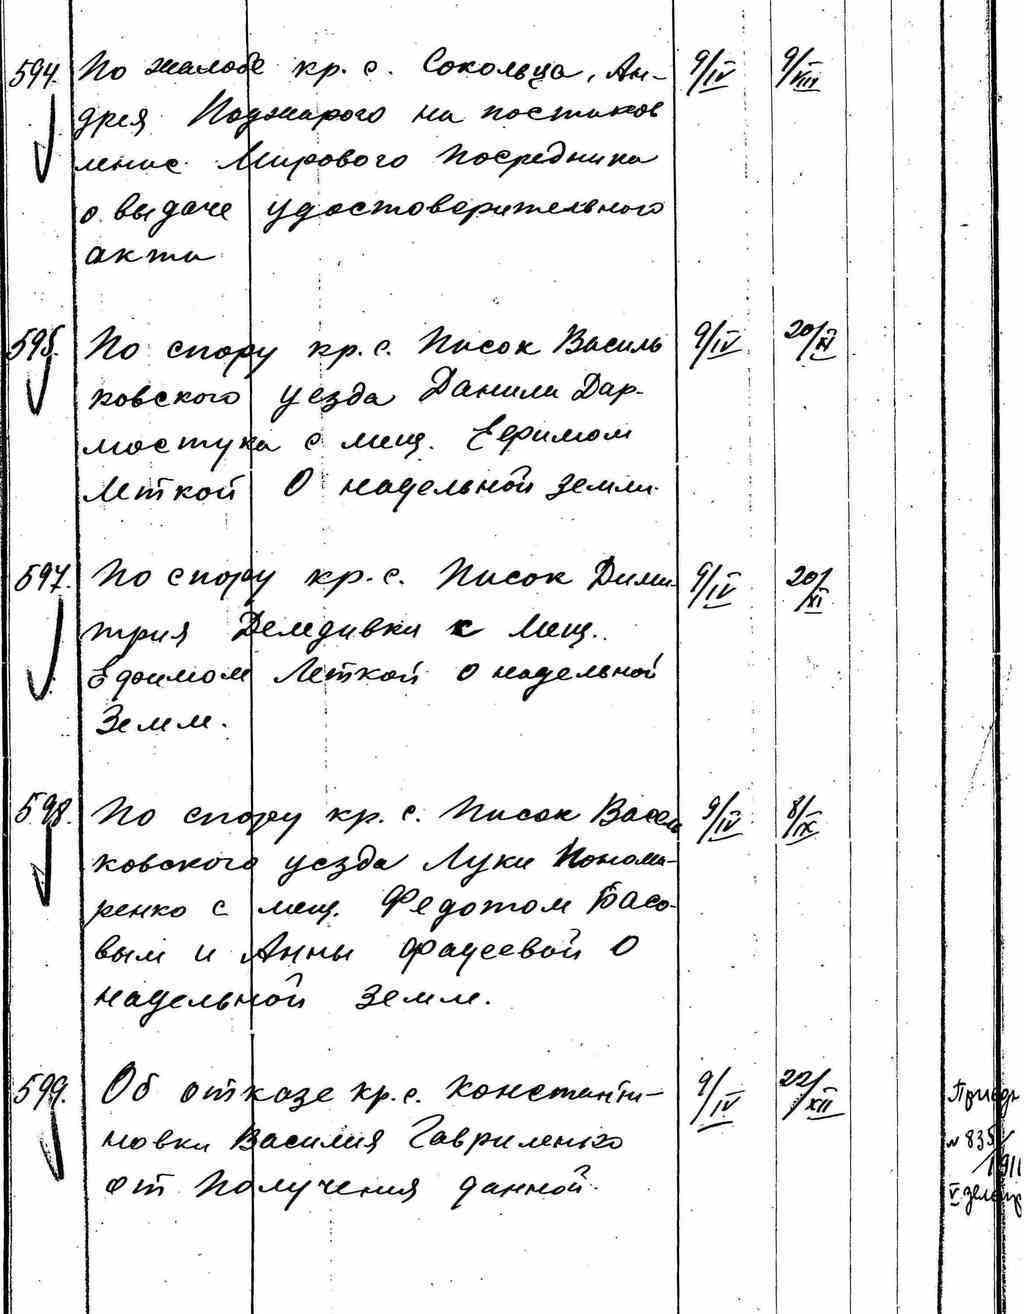 594. По жалобе кр. с. Сокольца, Ан- 9/IV 9/VIII
дрея Поджарого на постанов
ление Мирового Посредника
о выдаче удостоверительного
акта
595. По спору кр. с. Писок Василь 9/IV 20/XI
ковского уезда Данила Дар-
мостука с мещ. Ефимом
Леткой О надельной земли.
597. По спору кр. с. Писок Дими- 9/IV 20/XI
трия Демедивки к Мещ.
Ефимом Леткой о надельной
Земли.
598. По спору кр. с. Писок Василь 9/IV 8/IX
ковского уезда Луки Понома-
ренко с мещ. Федотом Басо-
вым и Анны Фадеевой О
надельной Земли.
599. Об отказе кр. с. Константи- 9/IV 22/XII
новки Василия Гавриленко
от Получения данной.
N 835/1911